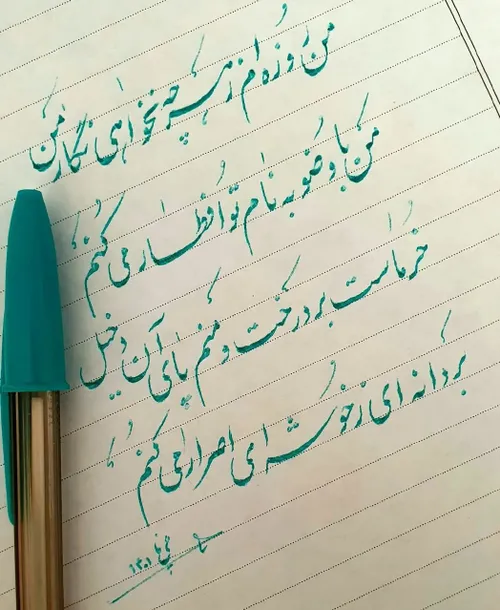 من روزه ام ز هر چه نخواهی نگار من
من با وضو به نام تو افطار می کنم
خرماست بر درخت و منم پای آن دخیل
بر دانه ای ز خوشه ای اصرار می کنم